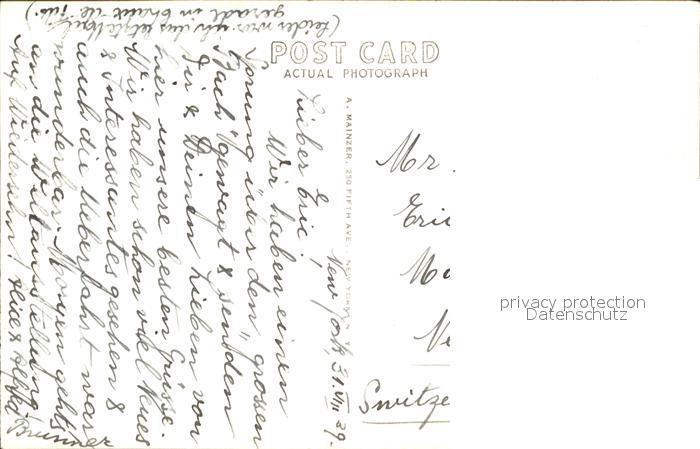 POST CARD
ACTUAL PHOTOGRAPH
A. MAINZER, 230 FIFTH AVE., NEW YORK, N.Y.
New York, 31. VIII 39.
Lieber Eric,
Wir haben einen
Sprung über den "grossen
Bach" gewagt & senden
Dir & Deinen Lieben von
hier unsere besten Grüsse.
Wir haben schon viel Neues
& Interessantes gesehen &
auch die Ueberfahrt war
wunderbar. Morgen gehts
an die Weltausstellung.
Auf Wiedersehn! Alice & Brunner
(Leider war ich das letzte Mal
gerade in Chaux-de-fds.)
Mr.
Eric
Switze
privacy protection
Datenschutz